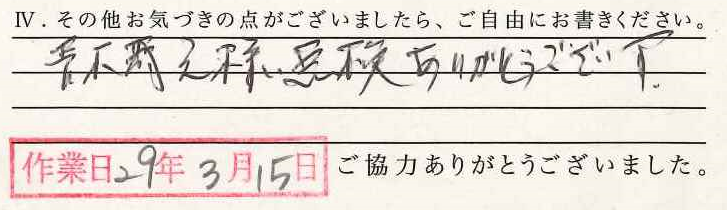 Ⅳ．その他お気づきの点がございましたら、ご自由にお書きください。
青木 様、点検ありがとうございます。
作業日29年3月15日
ご協力ありがとうございました。